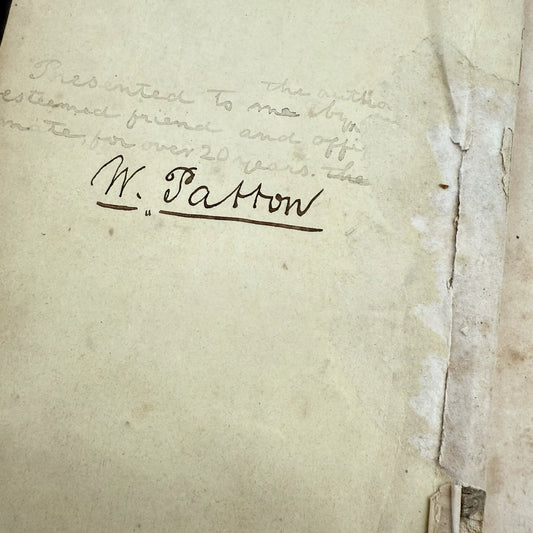 the author
Presented to me by my
esteemed friend and offi
mate for over 20 years. the
W. Patton